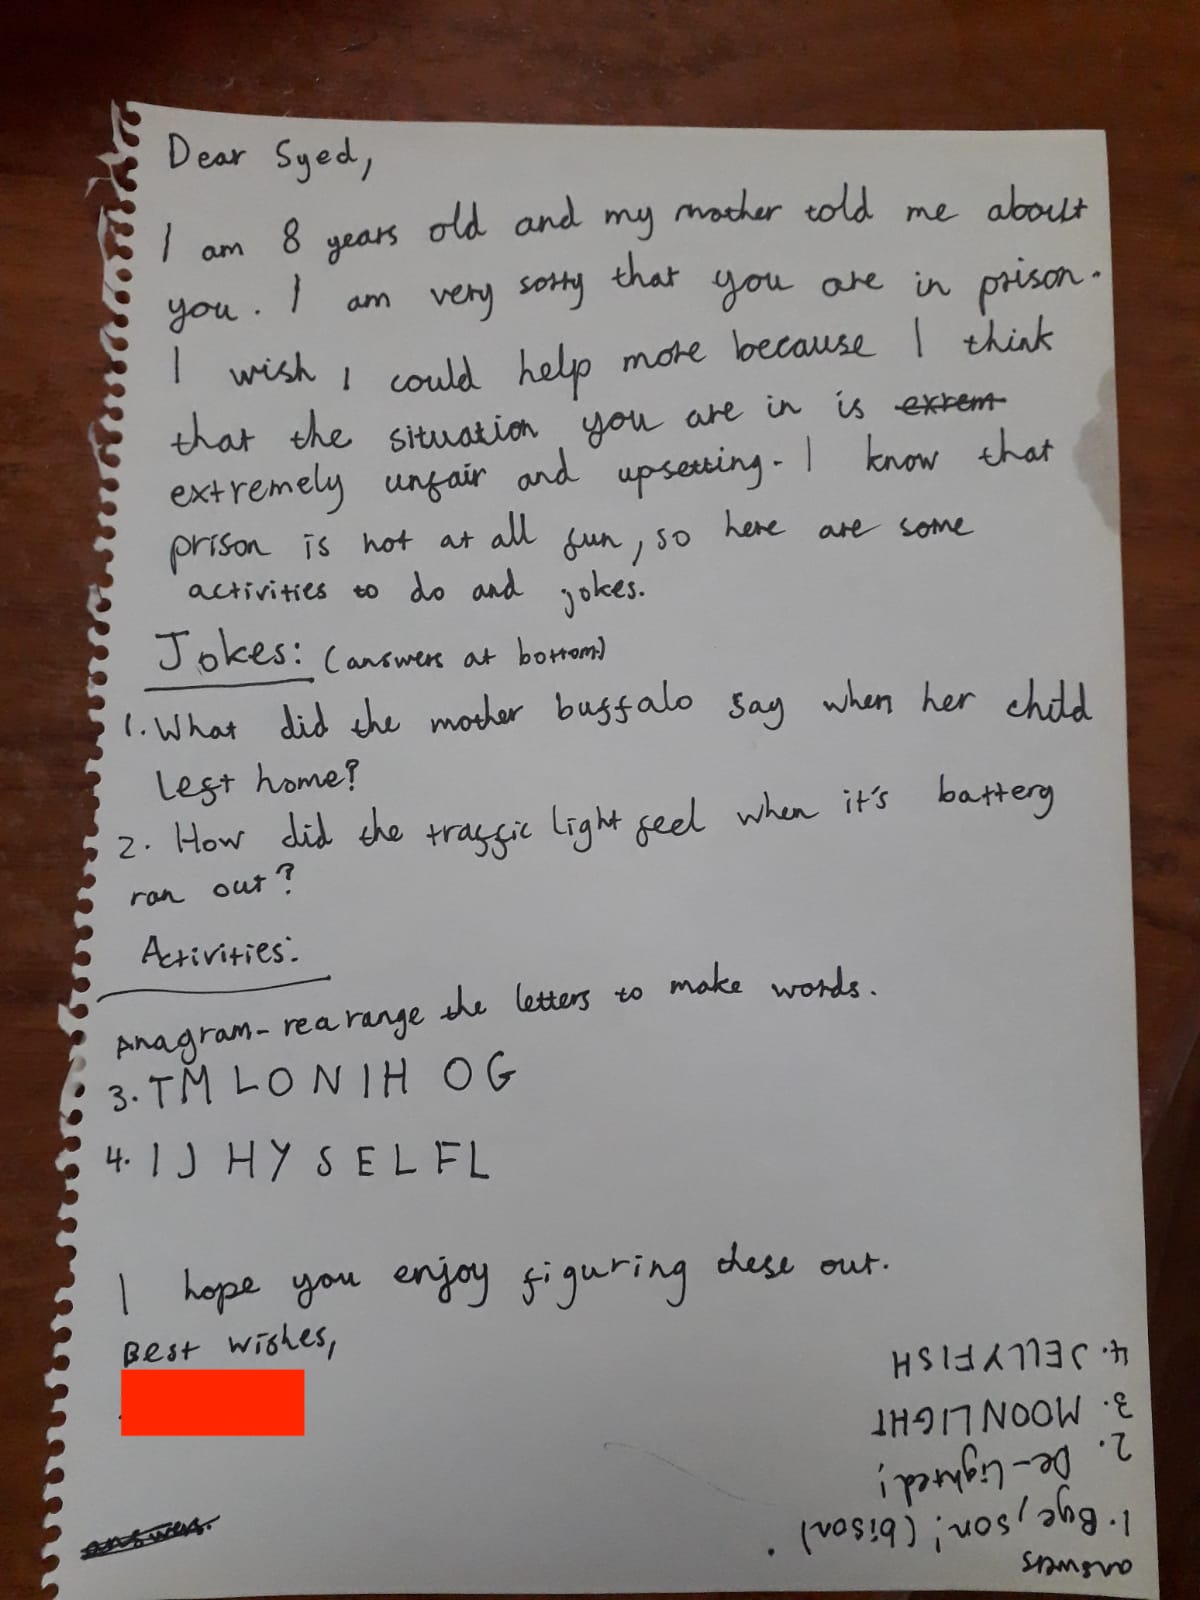 Dear Syed,
I am 8 years old and my mother told me about
you. I am very sorry that you are in prison.
I wish I could help more because I think
that the situation you are in is extrem
extremely unfair and upsetting. I know that
prison is not at all fun, so here are some
activities to do and jokes.
Jokes: (answers at bottom)
1. What did the mother buffalo say when her child
left home?
2. How did the traffic light feel when it's battery
ran out?
Activities:
Anagram - rearange the letters to make words.
3. TMLONIH OG
4. IJHYSELFL
I hope you enjoy figuring these out.
Best wishes,
answers.
answers
1. Bye, son! (bison)
2. De-lighted!
3. MOONLIGHT
4. JELLYFISH